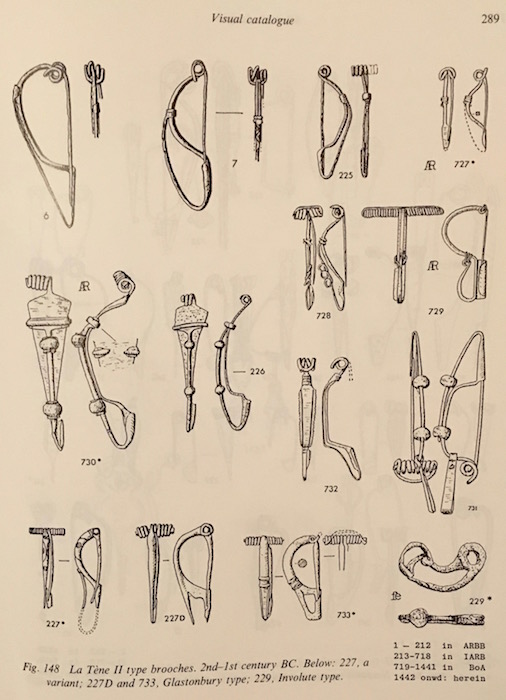 Visual catalogue
289
6
7
225
ÆR
727*
728
ÆR
729
ÆR
730*
226
732
731
227*
227D
733*
229*
Fig. 148 La Tène II type brooches. 2nd-1st century BC. Below: 227, a
variant; 227D and 733, Glastonbury type; 229, Involute type.
1 — 212 in ARBB
213-718 in IARB
719-1441 in BoA
1442 onwd: herein